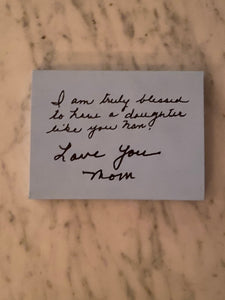 I am truly blessed
to have a daughter
like you Nan!
Love You
Mom